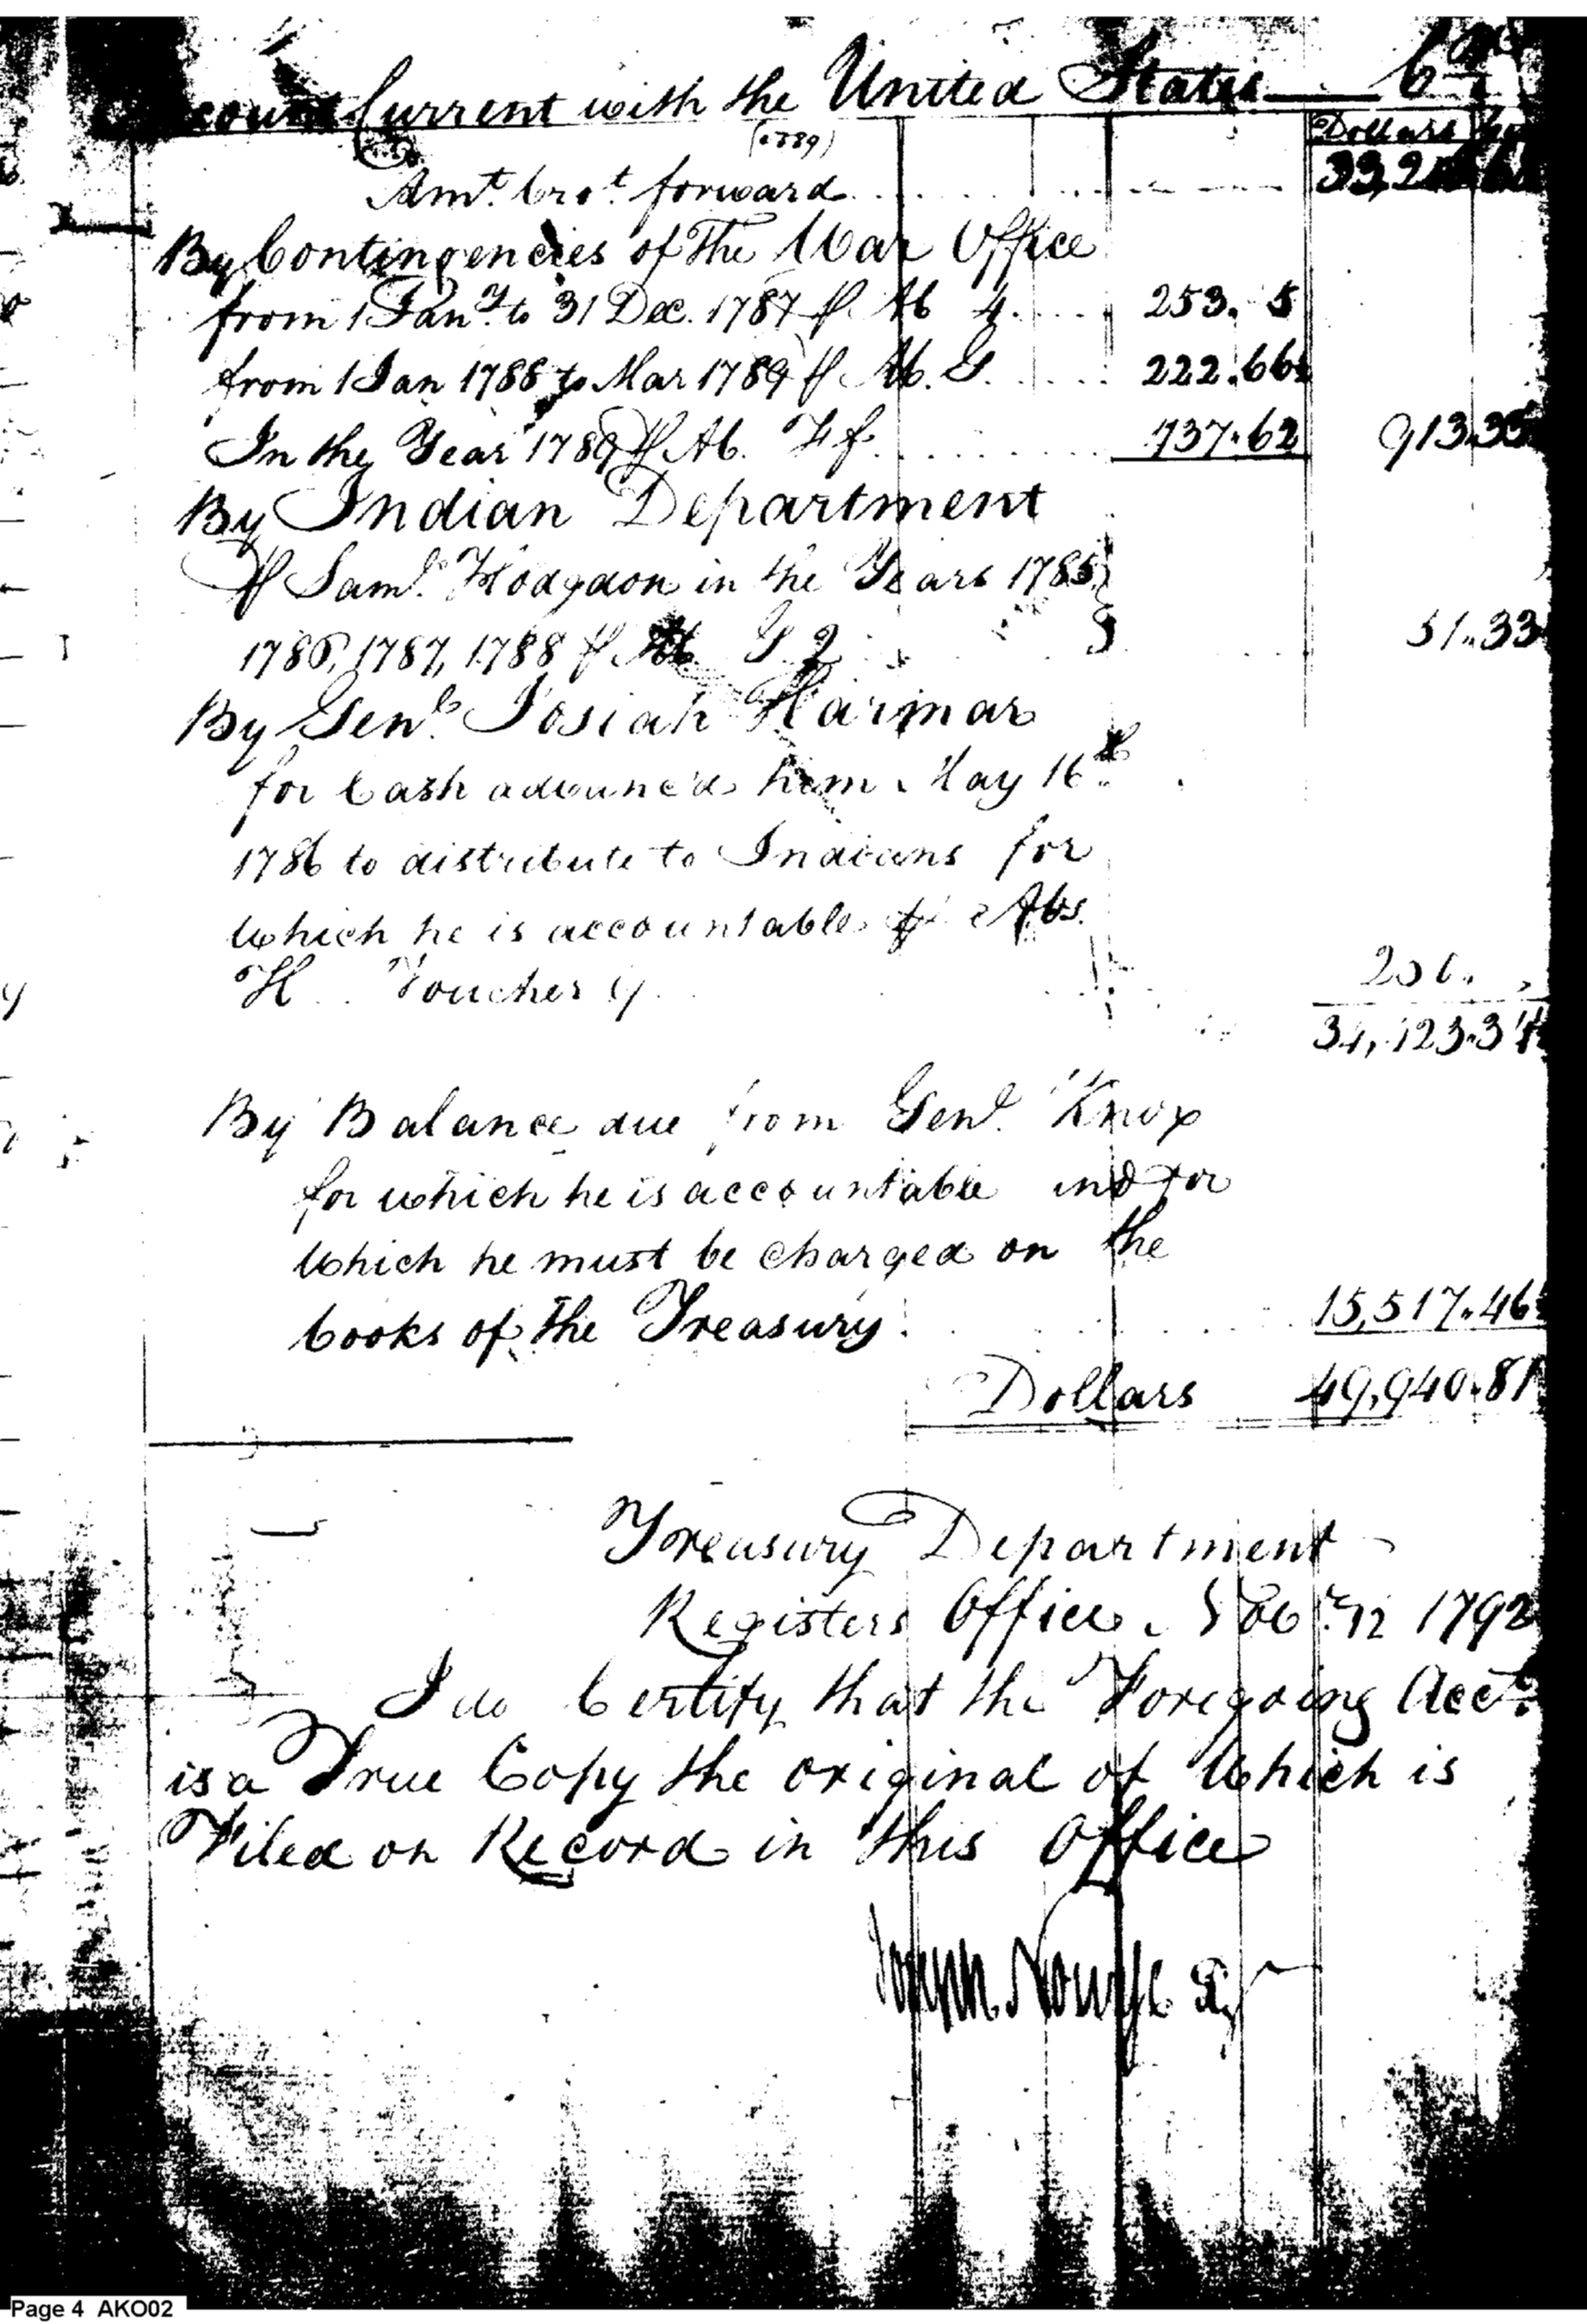 Account Current with the United States Cr
(2389)
Dollars
Amt. brot. forward
By Contingencies of The War Office
from 1 Jany. to 31 Dec. 1787 ⅌ Ab 4 253. 5
from 1 Jan 1788 to Mar 1789 ⅌ Ab. G. 222.66
In the Year 1789 ⅌ Ab. Ff. 437.62 913.33
By Indian Department
⅌ Saml. Hodgdon in the Years 1785,
1786, 1787, 1788 ⅌ Ab G 2 51.33
By Genl. Josiah Harmar
for Cash advanc'd him May 16th
1786 to distribute to Indians for
which he is accountable ⅌ Abs.
H Voucher 9
34,423.34
By Balance due from Genl. Knox
for which he is accountable and for
which he must be charged on the
books of the Treasury 15,517.46
Dollars 49,940.81
Treasury Department
Registers Office 1792
I do Certify that the Foregoing Acct.
is a True Copy the original of which is
Filed on Record in this Office
Joseph Nourse Rg
Page 4 AKO02